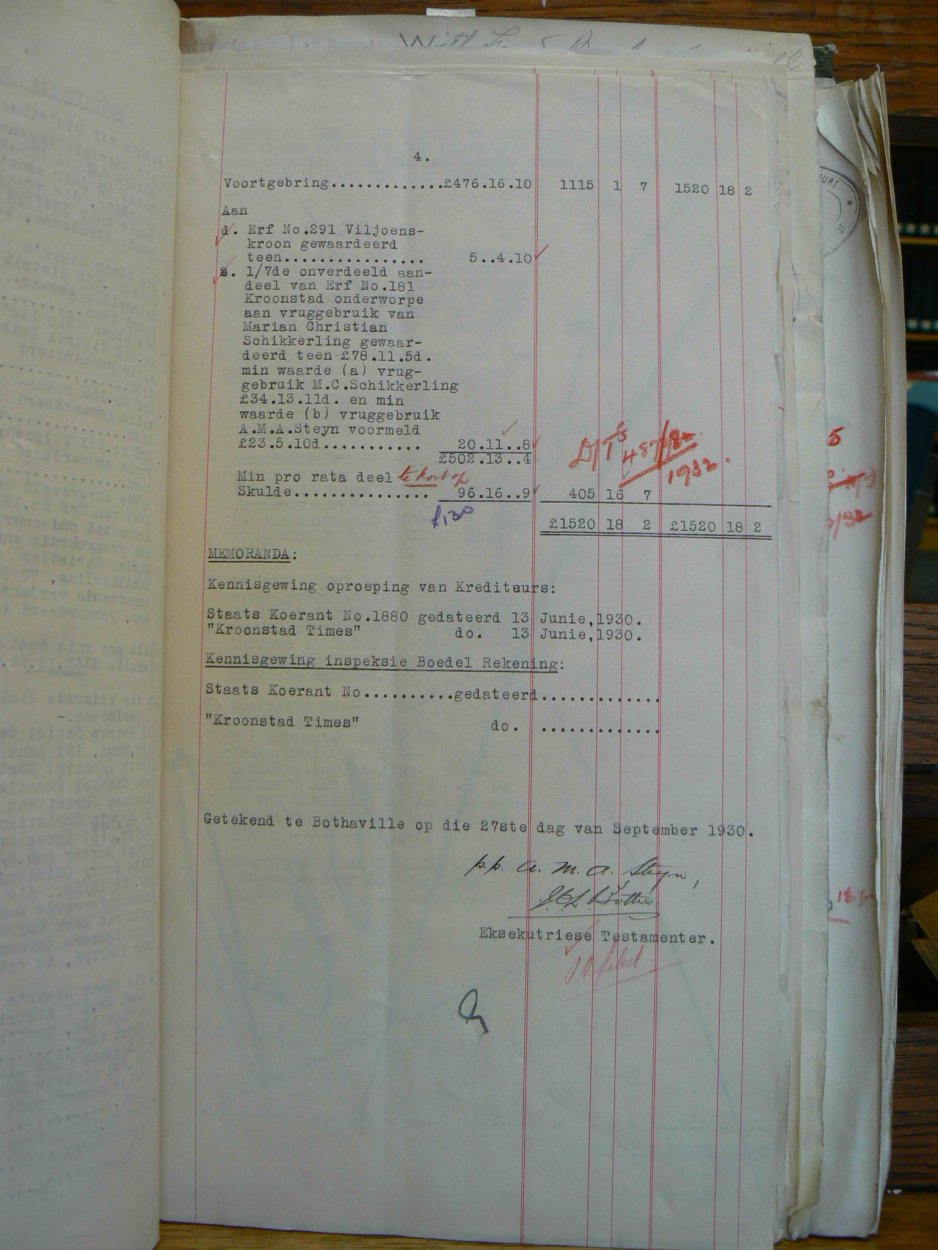 4.
Voortgebring.............£476.16.10 1115 1 7 1520 18 2
Aan
d. Erf No.291 Viljoens-
kroon gewaardeerd
teen................ 5..4.10
1/7de onverdeeld aan-
deel van Erf No.181
Kroonstad onderworpe
aan vruggebruik van
Marian Christian
Schikkerling gewaar-
deerd teen £78.11.5d.
min waarde (a) vrug-
gebruik M.C.Schikkerling
£34.13.11d. en min
waarde (b) vruggebruik
A.M.A.Steyn voormeld
£23.5.10d........... 20.11..8
£502.13..4
Min pro rata deel te kort op
Skulde............... 96.16..9 405 16 7
£130
£1520 18 2 £1520 18 2
1932.
MEMORANDA:
Kennisgewing oproeping van Krediteurs:
Staats Koerant No.1880 gedateerd 13 Junie,1930.
"Kroonstad Times" do. 13 Junie,1930.
Kennisgewing inspeksie Boedel Rekening:
Staats Koerant No..........gedateerd.............
"Kroonstad Times" do. .............
Getekend te Bothaville op die 27ste dag van September 1930.
p.p. A. M. A. Steyn,
Eksekutriese Testamenter.